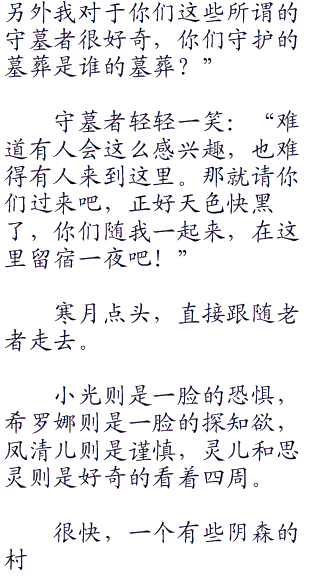 另外我对于你们这些所谓的
守墓者很好奇，你们守护的
墓葬是谁的墓葬？”
守墓者轻轻一笑：“难
道有人会这么感兴趣，也难
得有人来到这里。那就请你
们过来吧，正好天色快黑
了，你们随我一起来，在这
里留宿一夜吧！”
寒月点头，直接跟随老
者走去。
小光则是一脸的恐惧，
希罗娜则是一脸的探知欲，
凤清儿则是谨慎，灵儿和思
灵则是好奇的看着四周。
很快，一个有些阴森的
村